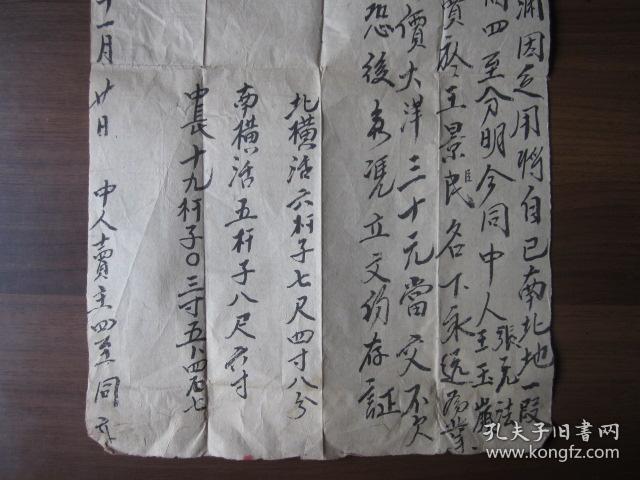 因乏用將自己南北地一段
四至分明今同中人張元
王玉
賣於王景民名下永遠為業
價大洋三十元當交不欠
恐後無憑立文約存証
北橫活六杆子七尺四寸八分
南橫活五杆子八尺六寸
中長十九杆子〇三寸五
十一月廿日 中人賣主四至同
孔夫子旧书网
www.kongfz.com